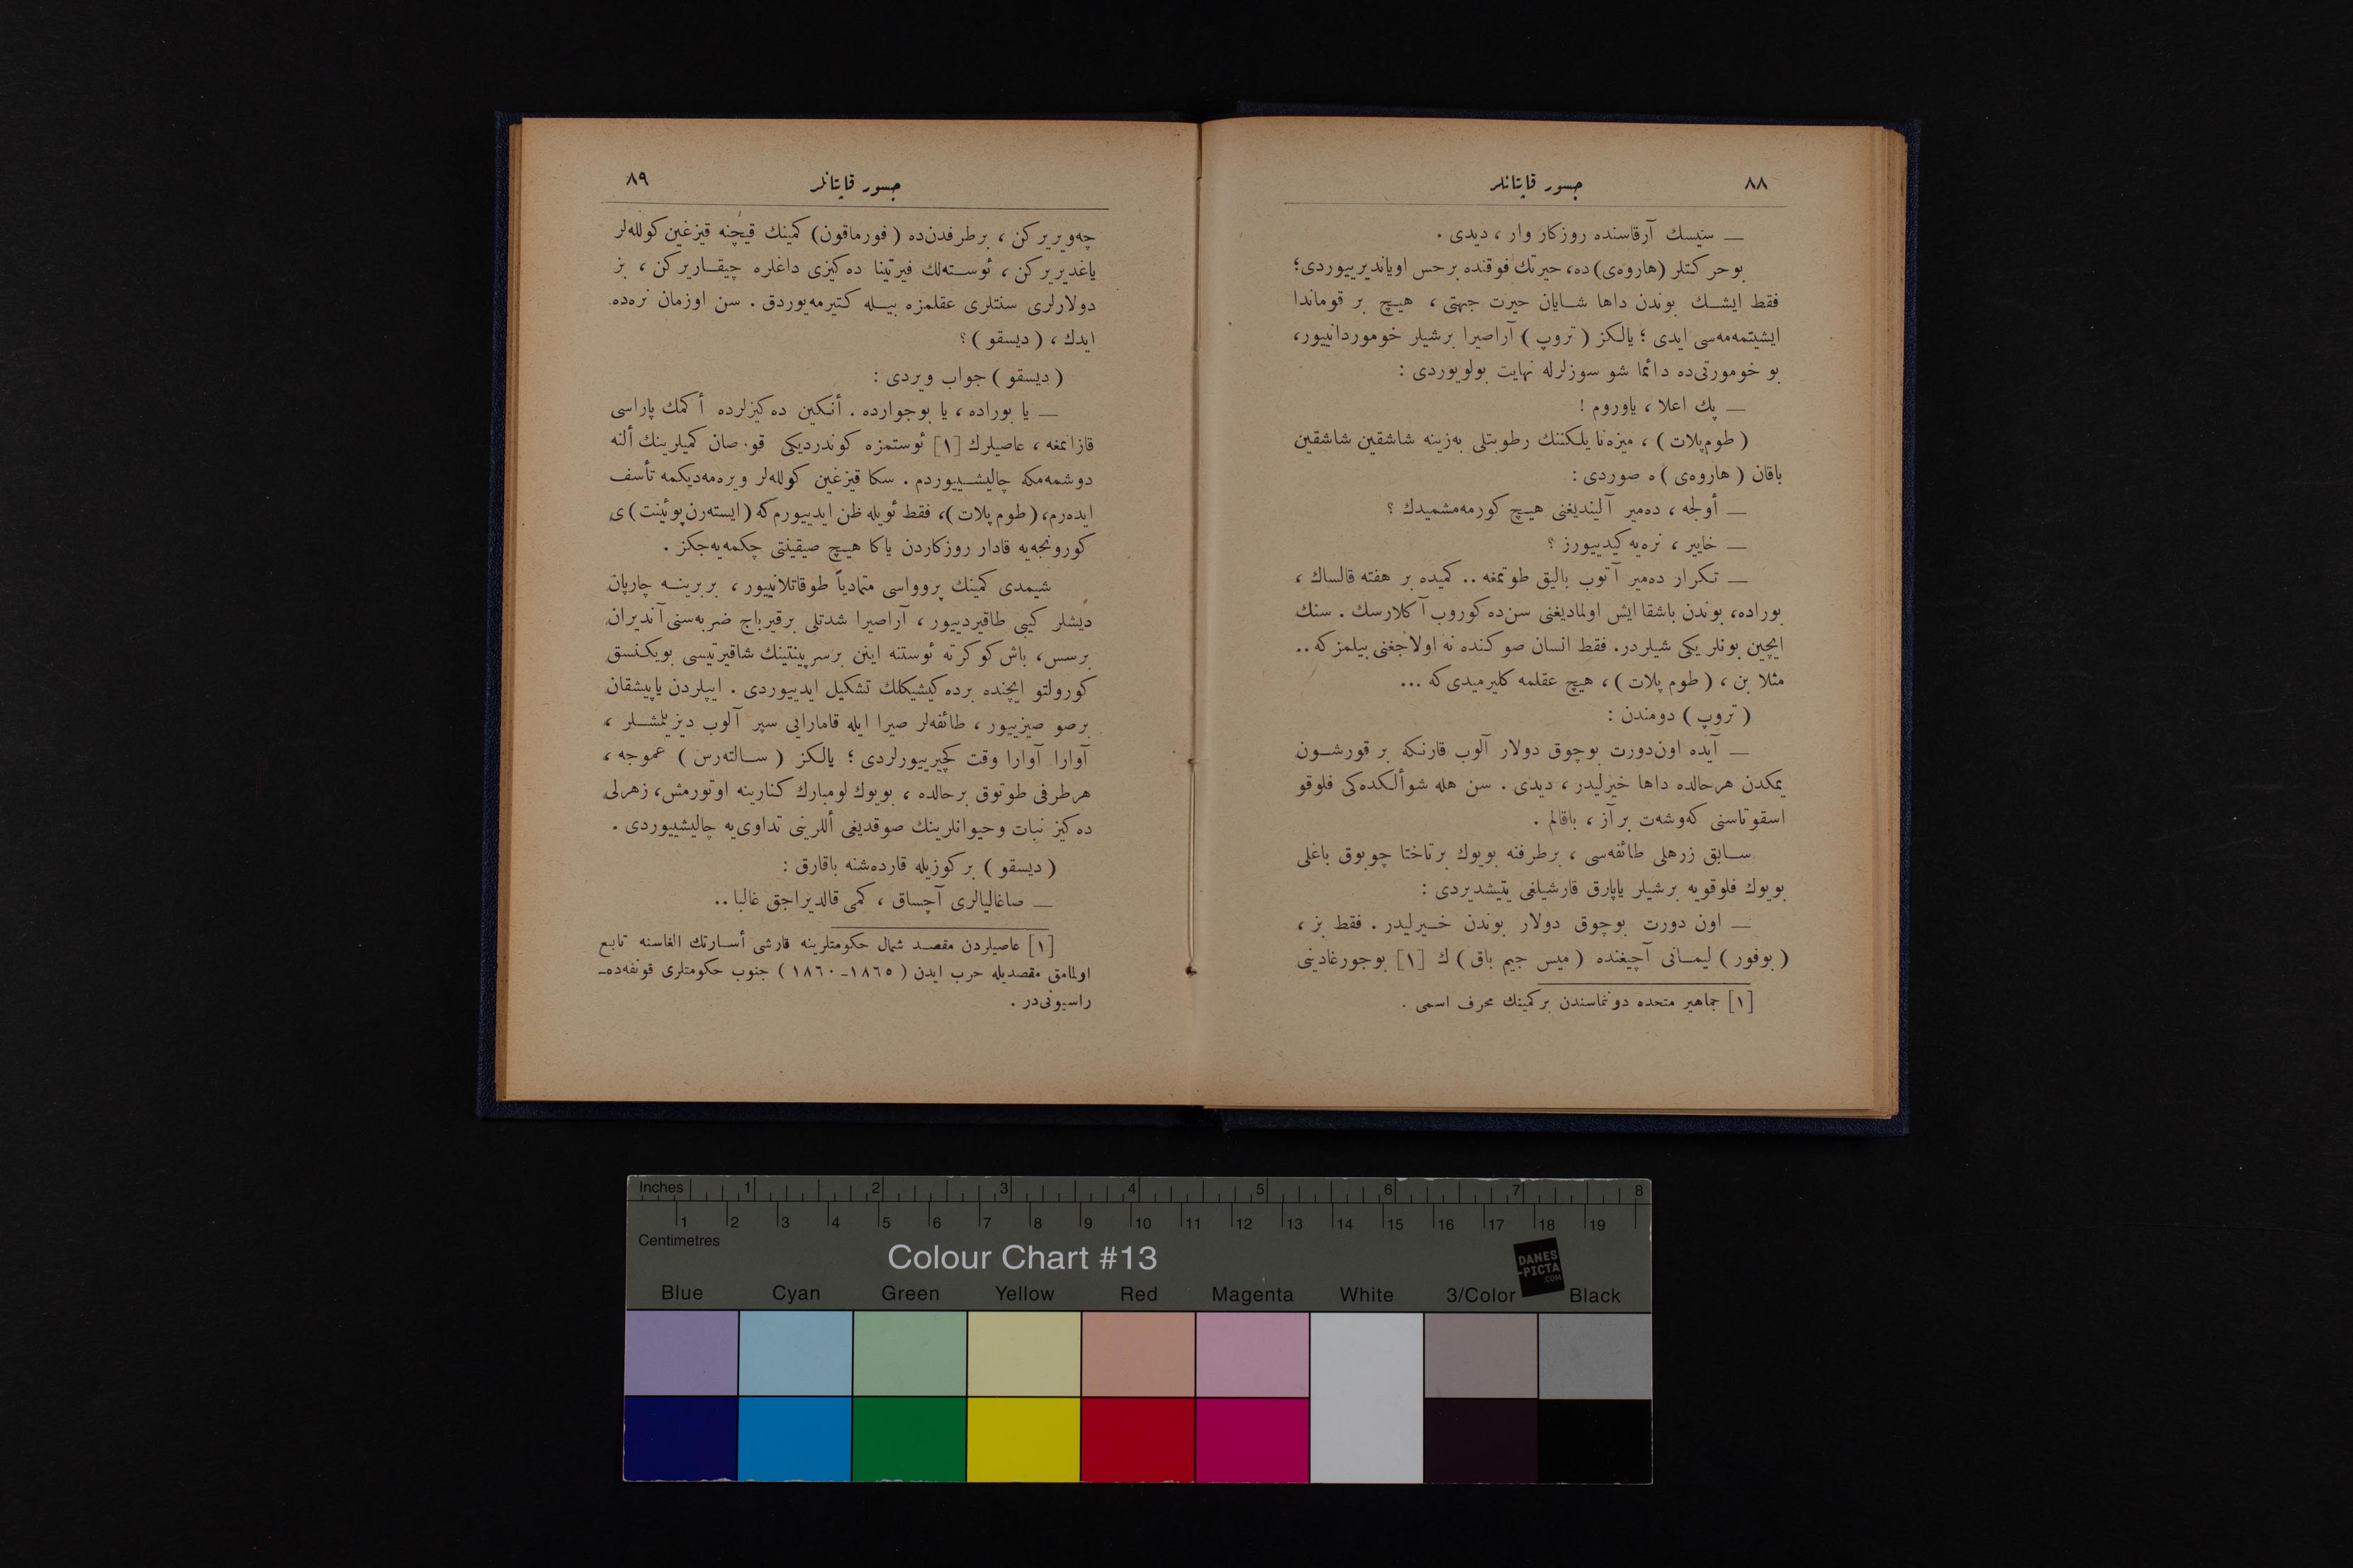 ٨٨
جسور قاپتانلر
— سيسك آرقاسنده روزكار وار ، ديدى .
بوحركتلر (هاروه‌ى) ده، حيرتك فوقنده برحس اوياندیرييوردى؛
فقط ايشــك بوندن داها شــايان حيرت جهتى ، هيــچ بر قوماندا
ايشيتمه‌مه‌سى ايدى ؛ يالكز ( تروپ ) آراصيرا برشيلر خوموردانييور،
بو خومورتى‌ده دائما شو سوزلرله نهايت بولويوردى :
— پك اعلا ، ياوروم !
( طوم‌پلات ) ، ميزه‌نا يلكننك رطوبتلى به‌زينه شاشقين شاشقين
باقان ( هاروه‌ى ) ه صوردى :
— أولجه ، ده‌مير آليندیغنى هيــچ كورمه‌مشميدك ؟
— خاير ، نره‌يه كيدييورز ؟
— تكرار ده‌مير آتوب باليق طوتمغه .. كميده بر هفته قالساك ،
بوراده، بوندن باشقا ايش اولماديغنى سن‌ده كوروب آكلارسك . سنك
ايچين بونلر يكى شيلردر. فقط انسان صوكنده نه اولاجغنى بيلمزكه ..
مثلا بن ، ( طوم پلات ) ، هيچ عقلمه كليرميدى‌كه ...
( تروپ ) دومندن :
— آيده اون‌دورت بوچوق دولار آلوب قارنكه بر قورشــون
يمكدن هرحالده داها خيرليدر ، ديدى . سن هله شوألكده‌كى فلوقو
اسقوتاسنى كه‌وشه‌ت برآز ، باقالم .
ســابق زرهلى طائفه‌سى ، برطرفنه بويوك برتاختا چوبوق باغلى
بويوك فلوقويه برشيلر ياپارق قارشيلغى يتيشديردى :
— اون دورت بوچوق دولار بوندن خــيرليدر . فقط بز ،
( بوفور ) ليمــانى آچيغنده ( ميس جيم باق ) ك [١] بوجورغادينى
[١] جماهير متحده دونماسندن بركمينك محرف اسمى .
جسور قاپتانلر
٨٩
چه‌ويريركن ، برطرفدن‌ده ( فورماقون) كمينك قيچنه قيزغين كولله‌لر
ياغديريركن ، ئوســته‌لك فيرتينا ده‌كيزى داغلره چيقــاريركن ، بز
دولارلرى سنتلرى عقلمزه بيــله كتيرمه‌يوردق . سن اوزمان نره‌ده
ايدك ، ( ديسقو ) ؟
( ديسقو ) جواب ويردى :
— يا بوراده ، يا بوجوارده . أنكين ده‌كيزلرده أكمك پاراسى
قازانمغه ، عاصيلرك [١] ئوستمزه كوندرديكى قورصان كميلرينك ألنه
دوشمه‌مكه چاليشــييوردم . سكا قيزغين كولله‌لر ويره‌مه‌ديكمه تأسف
ايده‌رم، ( طوم پلات )، فقط ئويله ظن ايدييورم‌كه ( ايسته‌رن پوئينت ) ى
كورونجه‌يه قادار روزكاردن ياكا هيــچ صيقينتى چكمه‌يه‌جكز .
شيمدى كمينك پروواسى متمادياً طوقاتلانييور ، بربرينــه چارپان
ديشلر كيبى طاقيردييور ، آراصيرا شدتلى برقيرباج ضربه‌سنى آنديران
برسس، باش كوكرته ئوستنه اينن برسرپينتينك شاقيرتيسى بويكنسق
كورولتو ايچنده برده‌كيشيكلك تشكيل ايدييوردى . ايپلردن ياپيشقان
برصو صيزييور ، طائفه‌لر صيرا ايله قامارايى سپر آلوب ديزيلمشــلر ،
آوارا آوارا وقت كچيرييورلردى ؛ يالكز ( ســالته‌رس ) عموجه ،
هرطرفى طوتوق برحالده ، بويوك لومبارك كنارينه اوتورمش، زهرلى
ده‌كيز نبات وحيوانلرينك صوقديغى أللرينى تداوى‌يه چاليشييوردى .
( ديسقو ) بركوزيله قارده‌شنه باقارق :
— صاغاليالرى آچساق ، كمى قالديراجق غالبا ..
[١] عاصيلردن مقصــد شمال حكومتلرينه قارشى أســارتك الغاسنه تابــع
اولمامق مقصديله حرب ايدن ( ١٨٦٥-١٨٦٠ ) جنوب حكومتلرى قونفه‌ده‌-
راسيونى‌در .
Inches 1 2 3 4 5 6 7 8
1 2 3 4 5 6 7 8 9 10 11 12 13 14 15 16 17 18 19
Centimetres
Colour Chart #13
DANES
-PICTA
.COM
Blue Cyan Green Yellow Red Magenta White 3/Color Black